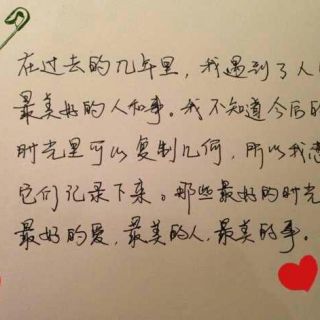 在过去的几年里，我遇到了人
最美好的人和事。我不知道今后的
时光里可以复制几何，所以我想
它们记录下来。那些最好的时光
最好的爱，最美的人，最美的事。